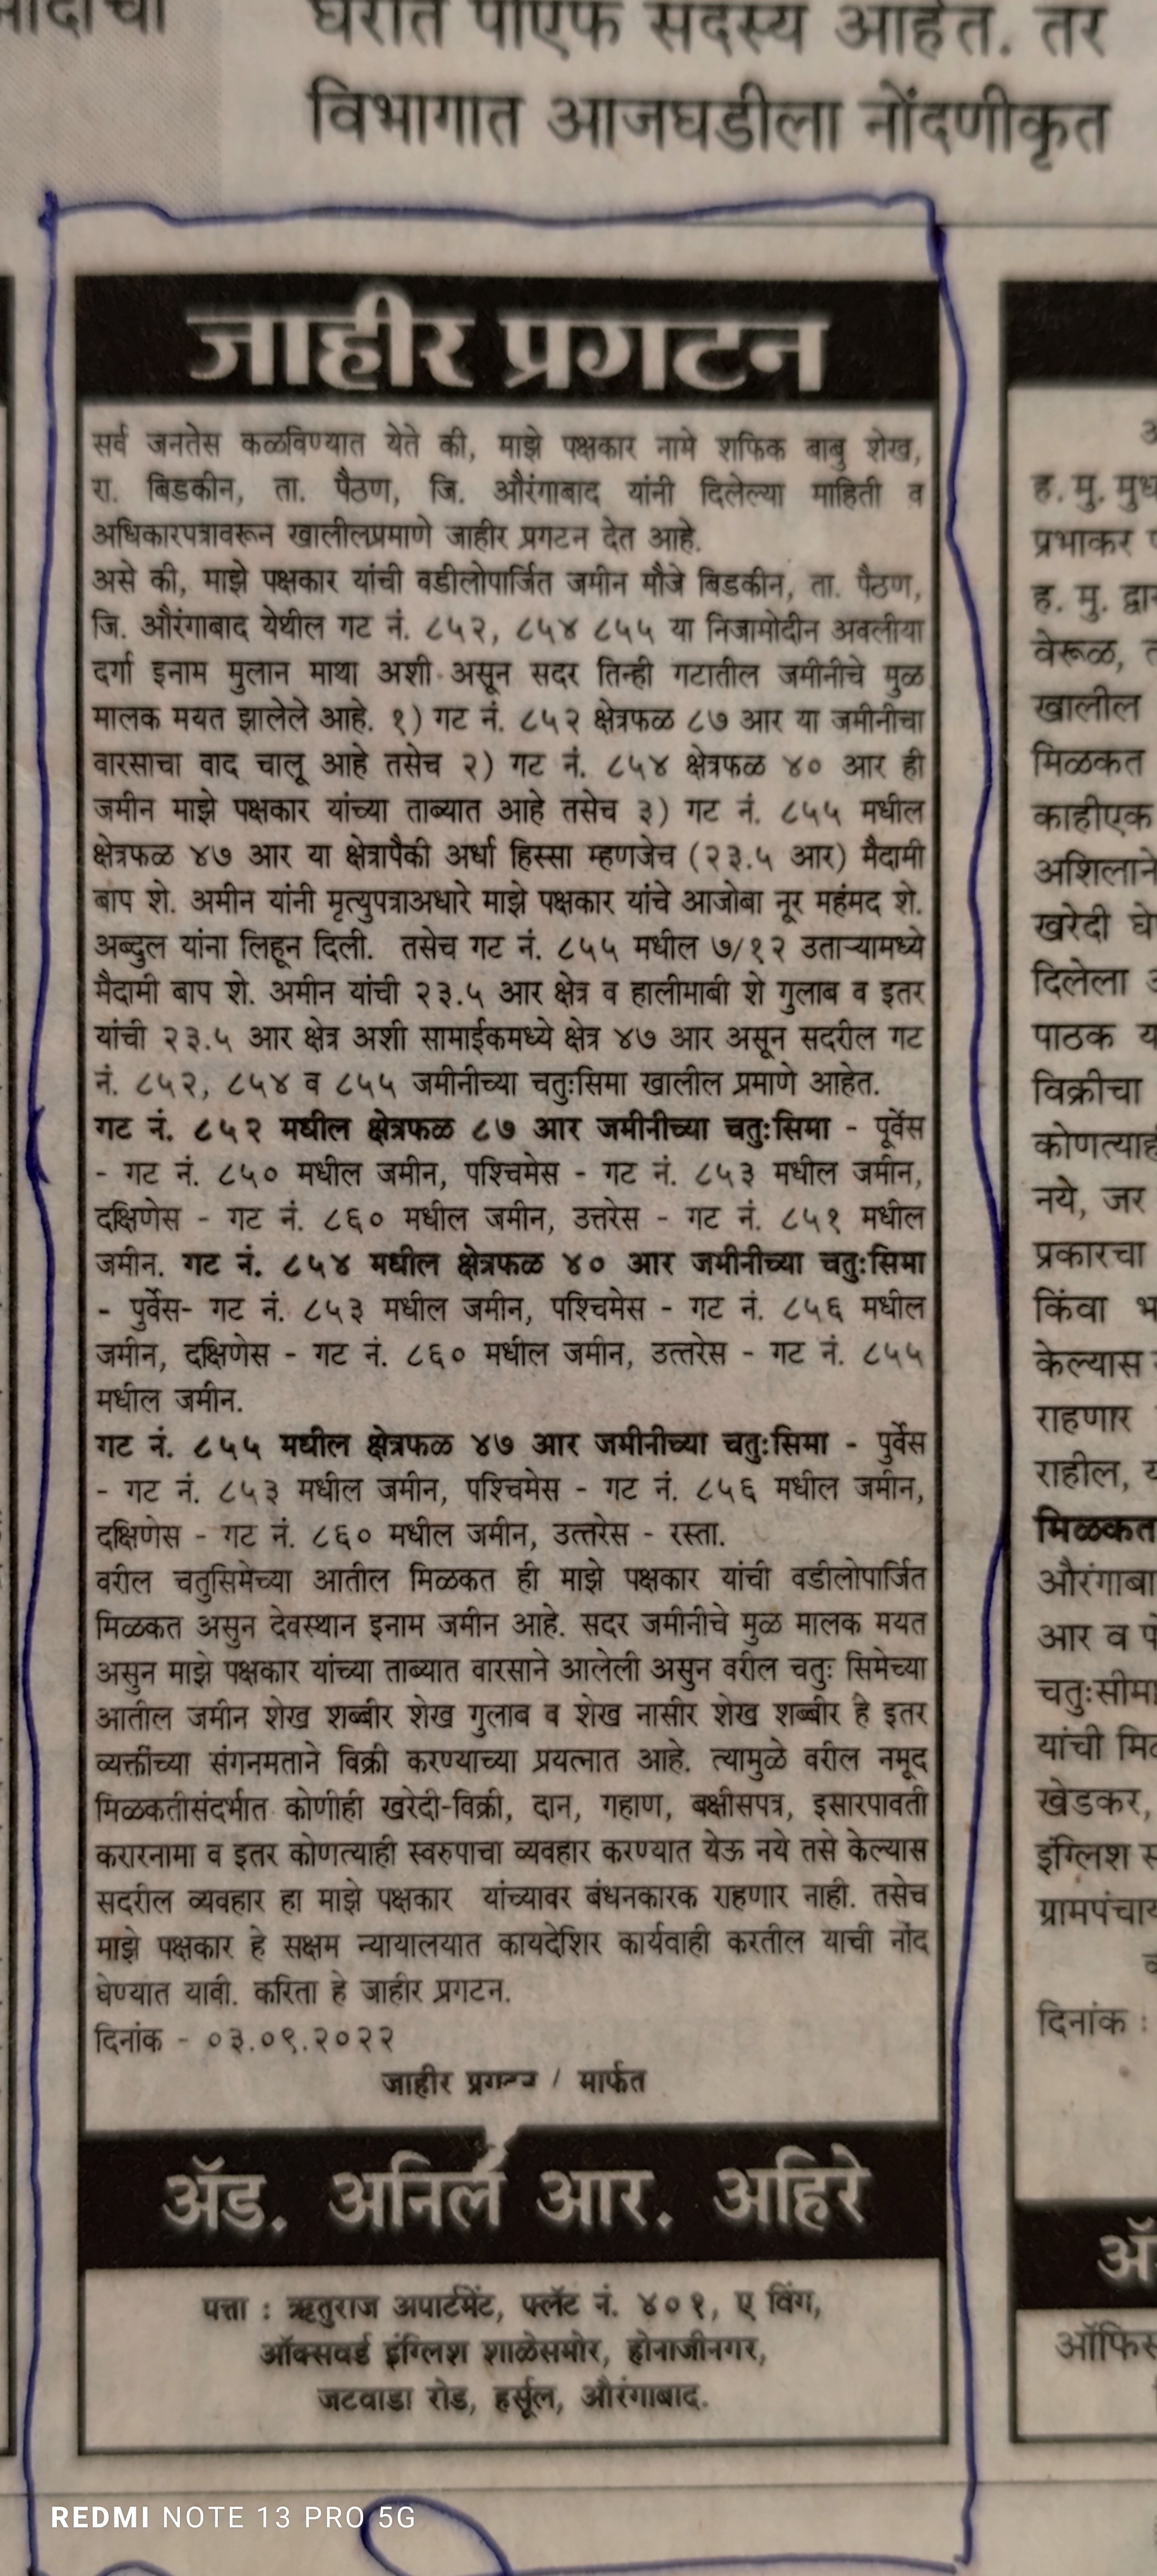 घरात पीएफ सदस्य आहेत. तर
विभागात आजघडीला नोंदणीकृत
जाहीर प्रगटन
सर्व जनतेस कळविण्यात येते की, माझे पक्षकार नामे शफिक बाबु शेख,
रा. बिडकीन, ता. पैठण, जि. औरंगाबाद यांनी दिलेल्या माहिती व
अधिकारपत्रावरून खालीलप्रमाणे जाहीर प्रगटन देत आहे.
असे की, माझे पक्षकार यांची वडीलोपार्जित जमीन मौजे बिडकीन, ता. पैठण,
जि. औरंगाबाद येथील गट नं. ८५२, ८५४ ८५५ या निजामोदीन अवलीया
दर्गा इनाम मुलान माथा अशी असून सदर तिन्ही गटातील जमीनीचे मुळ
मालक मयत झालेले आहे. १) गट नं. ८५२ क्षेत्रफळ ८७ आर या जमीनीचा
वारसाचा वाद चालू आहे तसेच २) गट नं. ८५४ क्षेत्रफळ ४० आर ही
जमीन माझे पक्षकार यांच्या ताब्यात आहे तसेच ३) गट नं. ८५५ मधील
क्षेत्रफळ ४७ आर या क्षेत्रापैकी अर्धा हिस्सा म्हणजेच (२३.५ आर) मैदामी
बाप शे. अमीन यांनी मृत्युपत्राअधारे माझे पक्षकार यांचे आजोबा नूर महंमद शे.
अब्दुल यांना लिहून दिली. तसेच गट नं. ८५५ मधील ७/१२ उताऱ्यामध्ये
मैदामी बाप शे. अमीन यांची २३.५ आर क्षेत्र व हालीमाबी शे गुलाब व इतर
यांची २३.५ आर क्षेत्र अशी सामाईकमध्ये क्षेत्र ४७ आर असून सदरील गट
नं. ८५२, ८५४ व ८५५ जमीनीच्या चतुःसिमा खालील प्रमाणे आहेत.
गट नं. ८५२ मधील क्षेत्रफळ ८७ आर जमीनीच्या चतुःसिमा - पूर्वेस
- गट नं. ८५० मधील जमीन, पश्चिमेस - गट नं. ८५३ मधील जमीन,
दक्षिणेस - गट नं. ८६० मधील जमीन, उत्तरेस - गट नं. ८५१ मधील
जमीन. गट नं. ८५४ मधील क्षेत्रफळ ४० आर जमीनीच्या चतुःसिमा
- पुर्वेस- गट नं. ८५३ मधील जमीन, पश्चिमेस - गट नं. ८५६ मधील
जमीन, दक्षिणेस - गट नं. ८६० मधील जमीन, उत्तरेस - गट नं. ८५५
मधील जमीन.
गट नं. ८५५ मधील क्षेत्रफळ ४७ आर जमीनीच्या चतुःसिमा - पुर्वेस
- गट नं. ८५३ मधील जमीन, पश्चिमेस - गट नं. ८५६ मधील जमीन,
दक्षिणेस - गट नं. ८६० मधील जमीन, उत्तरेस - रस्ता.
वरील चतुसिमेच्या आतील मिळकत ही माझे पक्षकार यांची वडीलोपार्जित
मिळकत असुन देवस्थान इनाम जमीन आहे. सदर जमीनीचे मुळ मालक मयत
असुन माझे पक्षकार यांच्या ताब्यात वारसाने आलेली असुन वरील चतुः सिमेच्या
आतील जमीन शेख शब्बीर शेख गुलाब व शेख नासीर शेख शब्बीर हे इतर
व्यक्तींच्या संगनमताने विक्री करण्याच्या प्रयत्नात आहे. त्यामुळे वरील नमूद
मिळकतीसंदर्भात कोणीही खरेदी-विक्री, दान, गहाण, बक्षीसपत्र, इसारपावती
करारनामा व इतर कोणत्याही स्वरुपाचा व्यवहार करण्यात येऊ नये तसे केल्यास
सदरील व्यवहार हा माझे पक्षकार यांच्यावर बंधनकारक राहणार नाही. तसेच
माझे पक्षकार हे सक्षम न्यायालयात कायदेशिर कार्यवाही करतील याची नोंद
घेण्यात यावी. करिता हे जाहीर प्रगटन.
दिनांक - ०३.०९.२०२२
जाहीर प्रगटन / मार्फत
ॲड. अनिल आर. अहिरे
पत्ता : ऋतुराज अपार्टमेंट, फ्लॅट नं. ४०१, ए विंग,
ऑक्सवर्ड इंग्लिश शाळेसमोर, होनाजीनगर,
जटवाडा रोड, हर्सूल, औरंगाबाद.
ह. मु. मुध
प्रभाकर
ह. मु. द्वा
वेरूळ,
खालील
मिळकत
काहीएक
अशिलाने
खरेदी घे
दिलेला
पाठक
विक्रीचा
कोणत्याही
नये, जर
प्रकारचा
किंवा भ
केल्यास
राहणार
राहील,
मिळकत
औरंगाबा
आर व
चतुःसीमा
यांची मि
खेडकर,
इंग्लिश स
ग्रामपंचाय
दिनांक :
ऑफिस
REDMI NOTE 13 PRO 5G